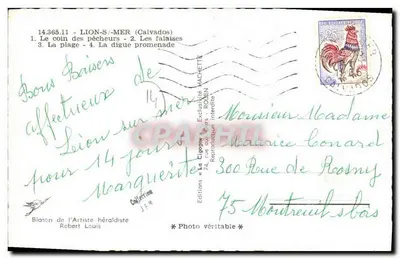 14.365.11 - LION-S/-MER (Calvados)
1. Le coin des pêcheurs - 2. Les falaises
3. La plage - 4. La digue promenade
Bons Baisers
affectueux de
Lion sur mer
pour 14 jours
Marguerite
(14)
Editions "La Cigogne" - Exclusivité HACHETTE
74, rue ROUEN
Reproduction interdite
Collection
Monsieur Madame
Maurice Conard
300 Rue de Rosny
75 Montreuil s bois
Blason de l'Artiste héraldiste
Robert Louis
* Photo véritable *